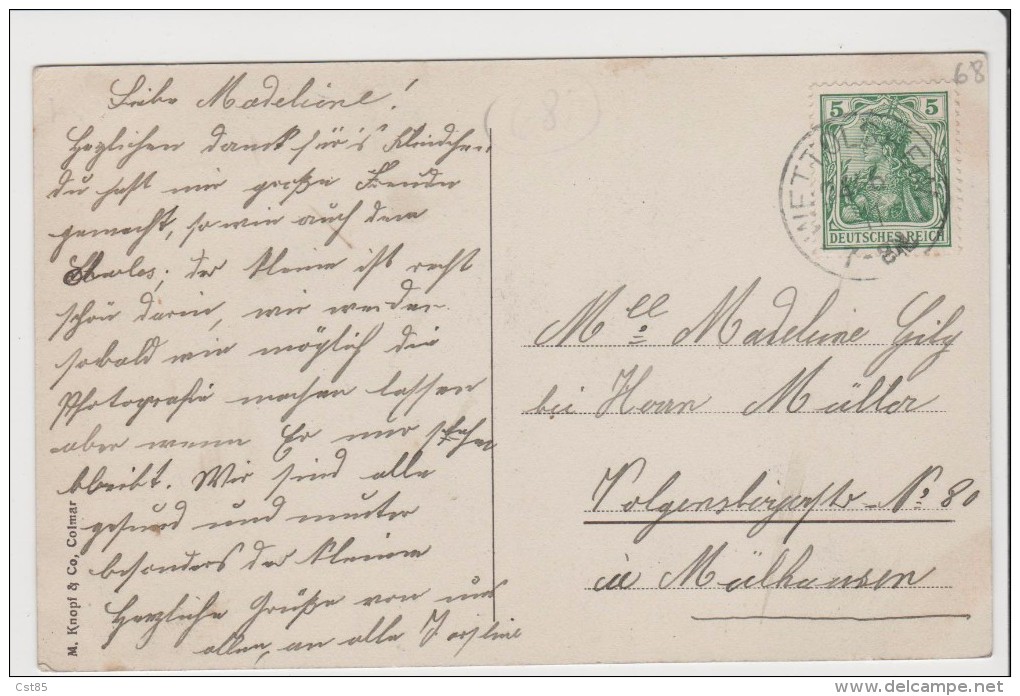 68
Liebe Madeleine!
Herzlichen Danck für's Kleidchen
du hast mir große Freude
gemacht, so wie auch dem
Charles; der kleine ist recht
schön darin, wir werden
sobald wie möglich die
Photografie machen lassen
aber wenn Er nur stehen
bleibt. Wir sind alle
gesund und munter
besonders der kleine
Herzliche Grüße von uns
allen, an alle
5 5
DEUTSCHES REICH
Mlle Madeleine Gily
bei Herrn Müller
No 80
in Mülhausen
M. Knopf & Co, Colmar
Cst85
delcampe.net